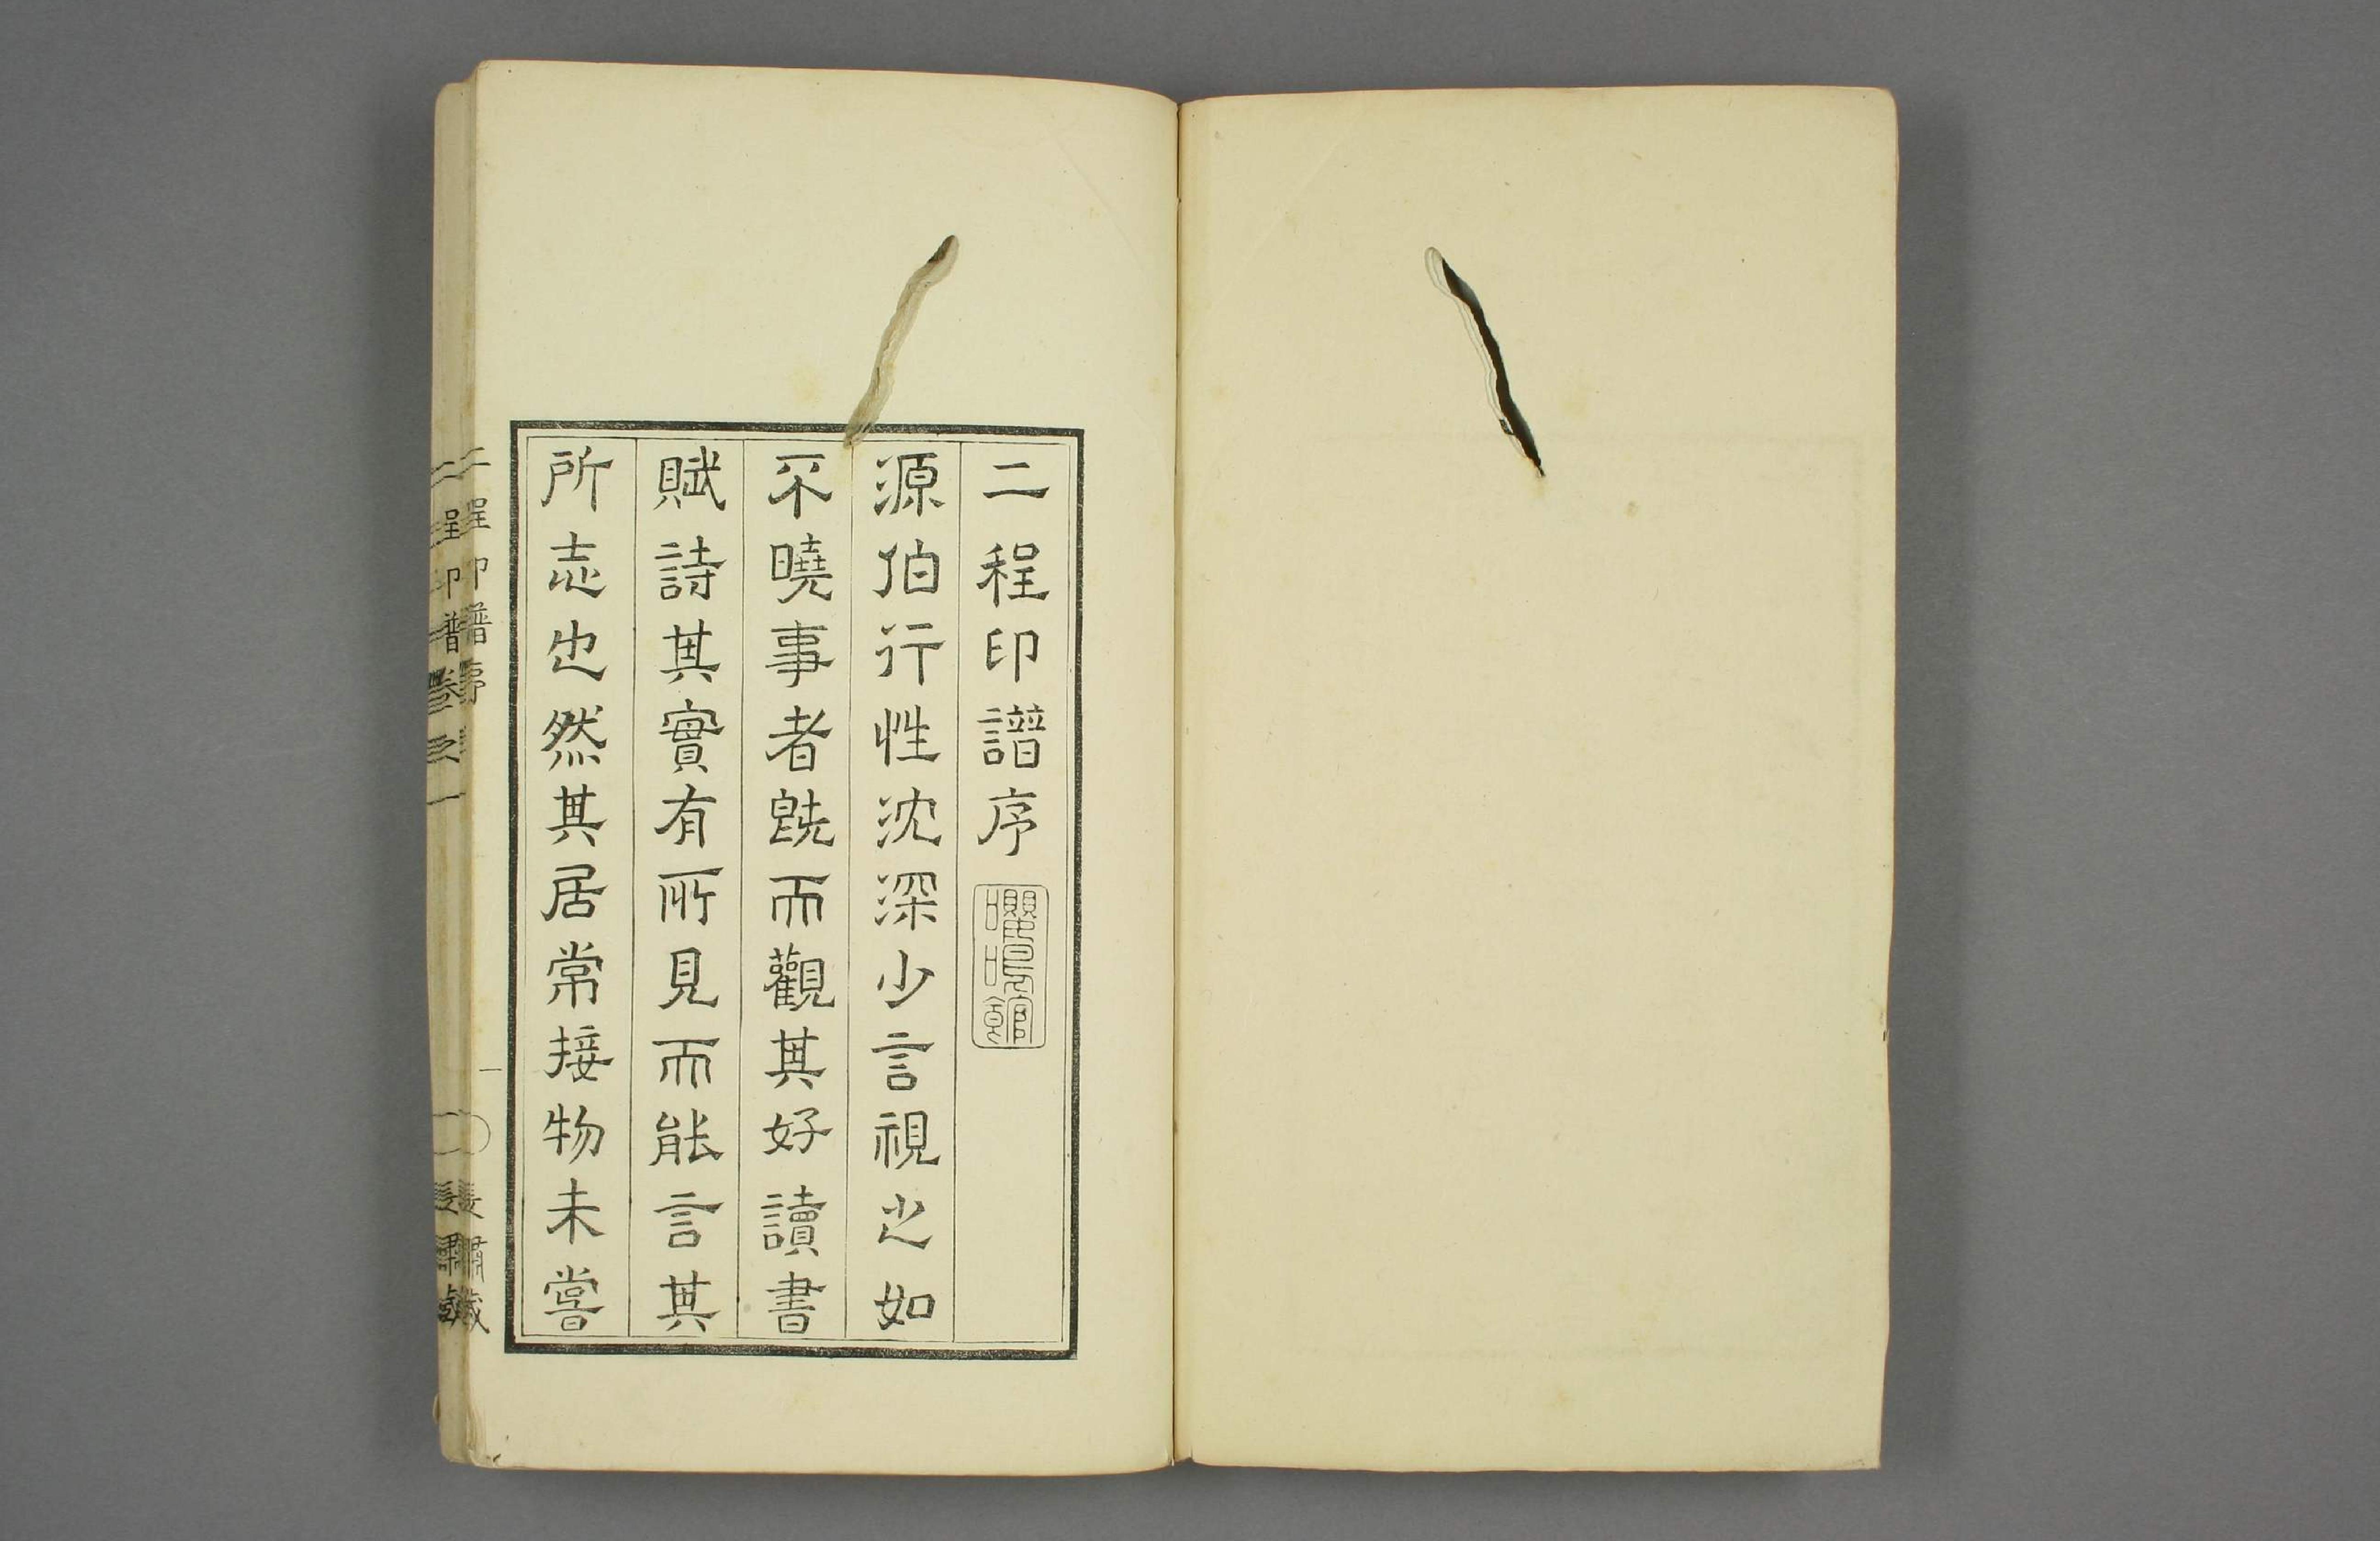 二程印譜序
源伯行性沈深少言視之如
不曉事者旣而觀其好讀書
賦詩其實有所見而能言其
所志也然其居常接物未嘗
二程印譜序
一
二程印譜卷之一